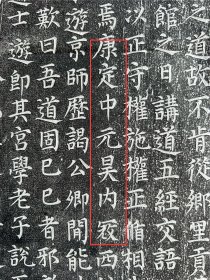 之道故不肯從鄉里貢
館之日講道五經交語
以正守權施權正相
焉康定中元昊内叛西
遊京師歷謁公卿開能
歎曰吾道固已已者邪
士遊即其宮學老子説